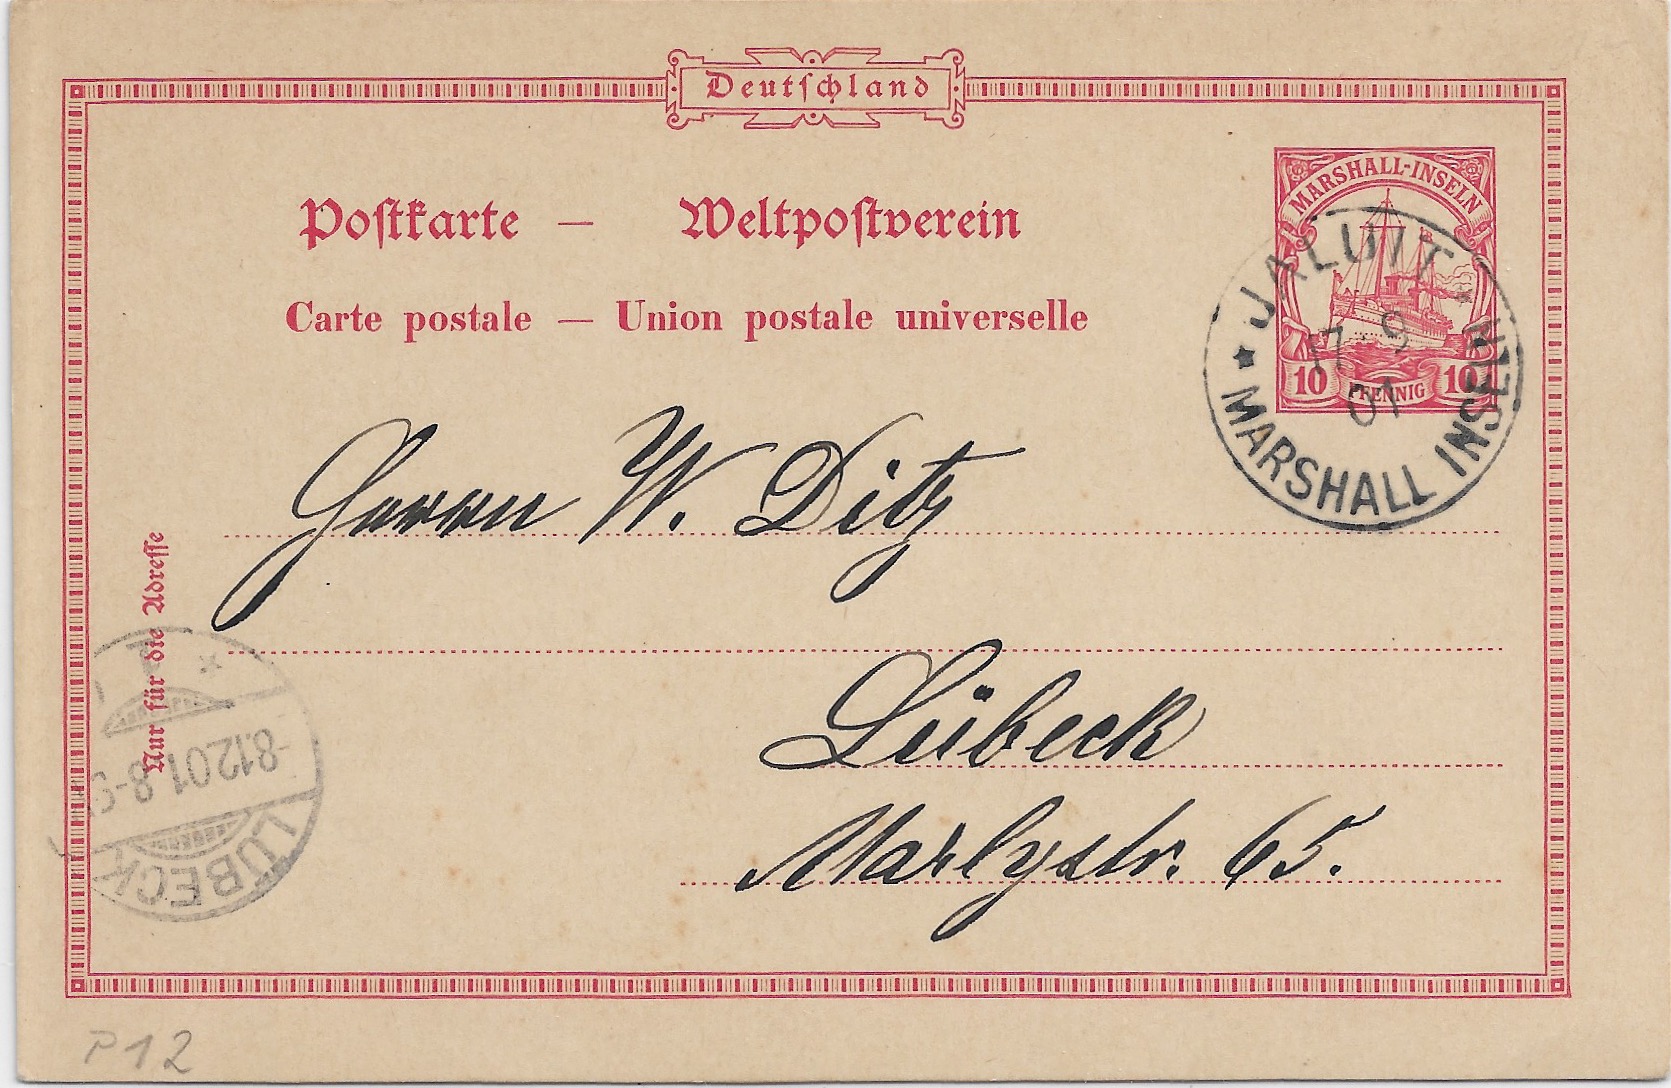 Deutschland
MARSHALL-INSELN
10 PFENNIG 10
JALUIT
17 9
01
MARSHALL INSELN
Postkarte — Weltpostverein
Carte postale — Union postale universelle
Herrn W. Ditz
Lübeck
Marlystr. 65.
Nur für die Adresse
LÜBECK
-8.12.01.8-9
P 12